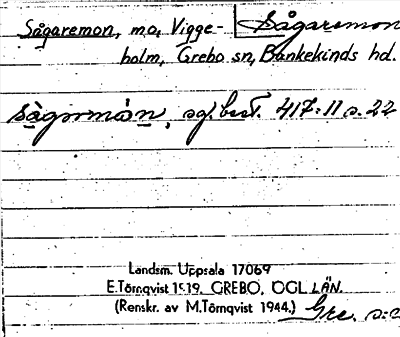 Sågaremon, mo, Vigge- Sågaremon
holm, Grebo sn, Bankekinds hd.
sg. best. 417:11 s. 22
Landsm. Uppsala 17069
E.Törnqvist 1919. GREBO, ÖGL. LÄN.
(Renskr. av M.Törnqvist 1944.) Gre.